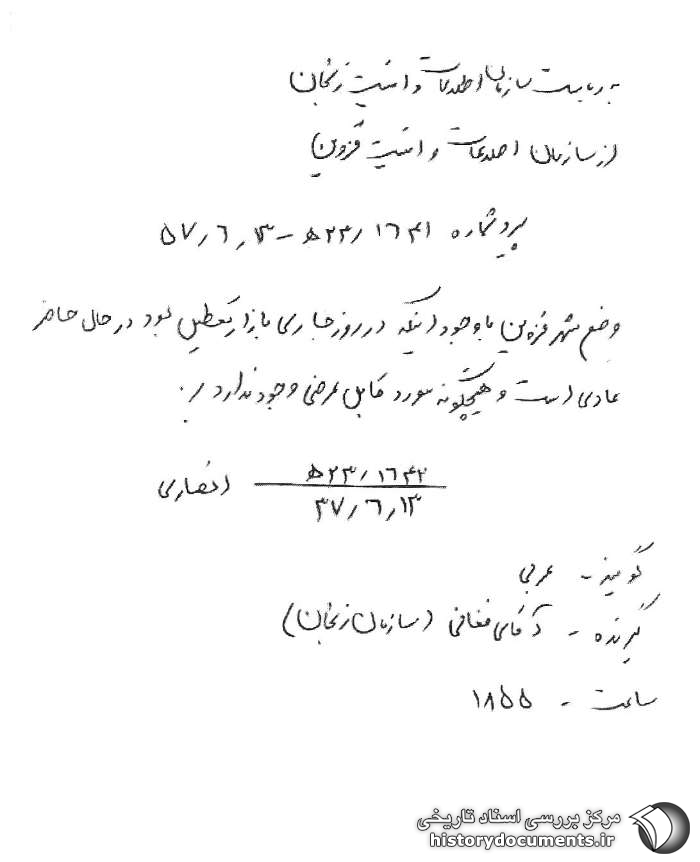 به ریاست سازمان اطلاعات و امنیت زنجان
از سازمان اطلاعات و امنیت قزوین
پیرو شماره ۱۶۴۱ /۲۳ه‍ - ۵۷٫۶٫۱۳
وضع شهر قزوین با وجود اینکه در روز جاری بازار تعطیل بود در حال حاضر
عادی است و هیچگونه مورد قابل عرضی وجود ندارد
۱۶۴۲ /۲۳ه‍
۳۷٫۶٫۱۳
انصاری
گوینده - عربی
گیرنده - آقای فغانی (سازمان زنجان)
ساعت - ۱۸۵۵
مرکز بررسی اسناد تاریخی
historydocuments.ir